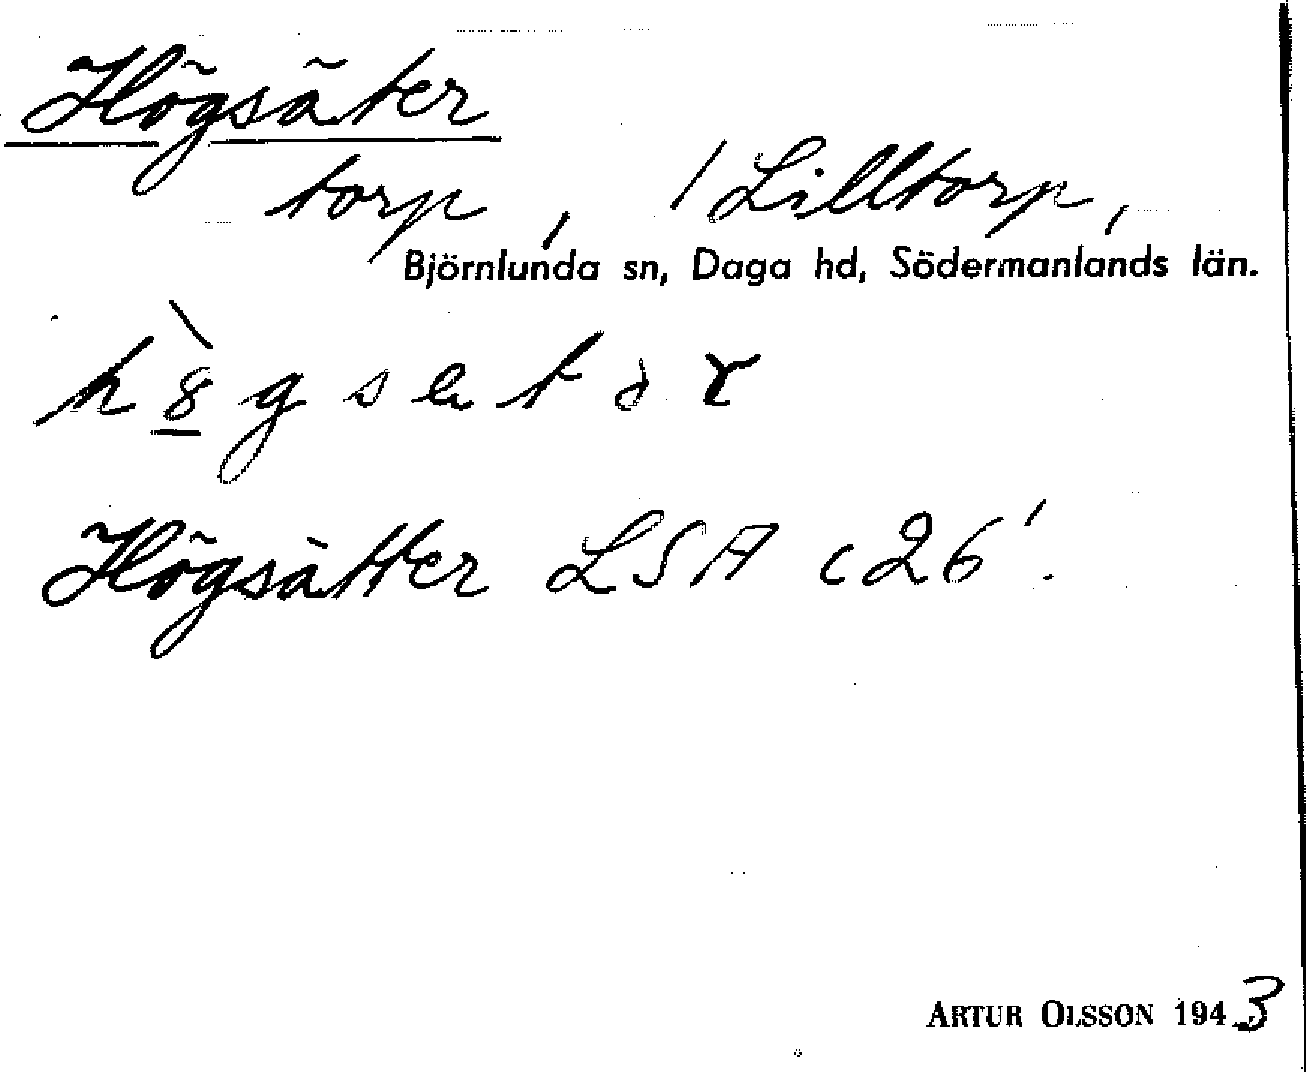 Högsäter
torp, / Lilltorp,
Björnlunda sn, Daga hd, Södermanlands län.
Högsätter LSA c26'.
ARTUR OLSSON 1943